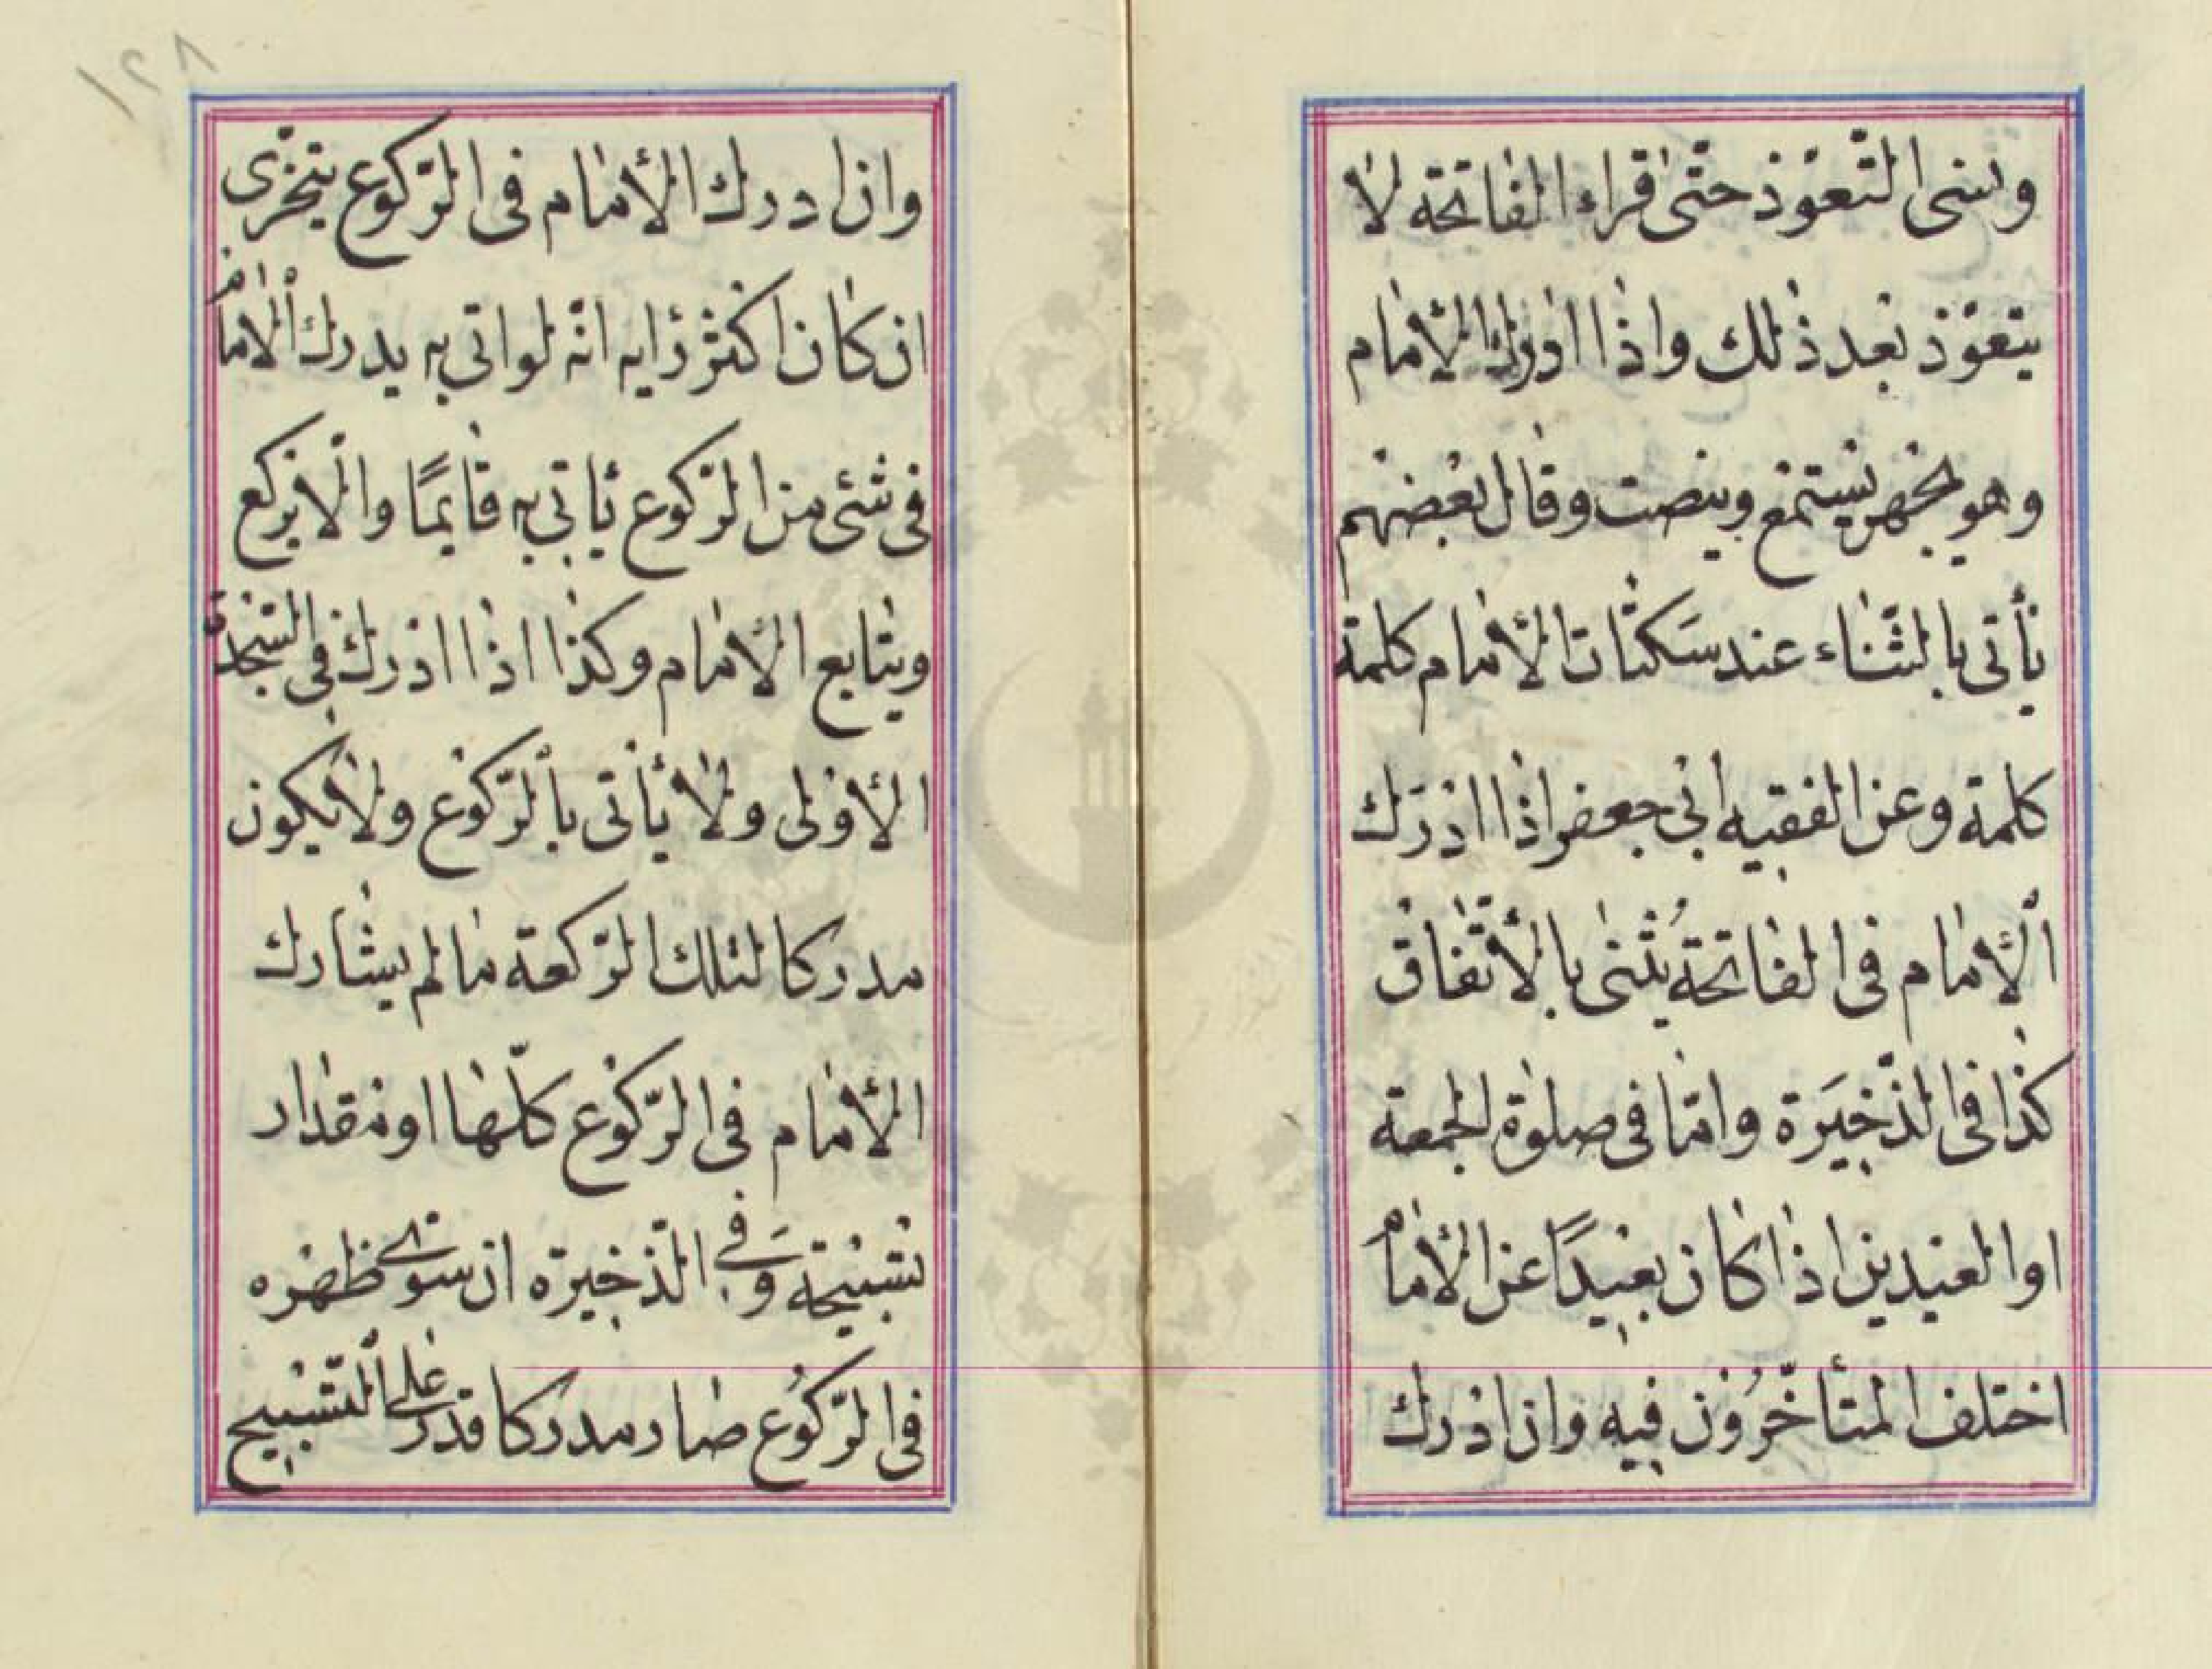 ونسى التّعوّذ حتّى قراء الفاتحة لا
يتعوّذ بعد ذلك واذا ادرك الأمام
وهو يجهر يستمع وينصت وقال بعضهم
يأتى بالثّناء عند سَكتات الأمام كلمة
كلمة وعن الفقيه ابى جعفر اذا ادرَك
الأمام فى الفاتحة يُثنى بالأتّفاق
كذا فى الذّخيَرة وامّا فى صلوة الجمعة
او العيدين اذا كان بعيدًا عن الأمام
اختلف المتأخّرُون فيه وان ادرك
١٢٨
وان ادرك الأمام فى الرّكوع يتحرّى
ان كان اكثر رايه انّه لو اتى به يدرك الامام
فى شئى من الرّكوع ياتى به قايمًا والّا يركع
ويتابع الأمام وكذا اذا ادرك فى السّجدة
الأولى ولا يأتى بالرّكوع ولا يكون
مدركا لتلك الرّكعة مالم يشارك
الأمام فى الرّكوع كلّها او مقدار
تسبيحة وَفى الذّخيرة ان سوى ظهره
فى الرّكُوع صار مدركا قدر على التّسبيح